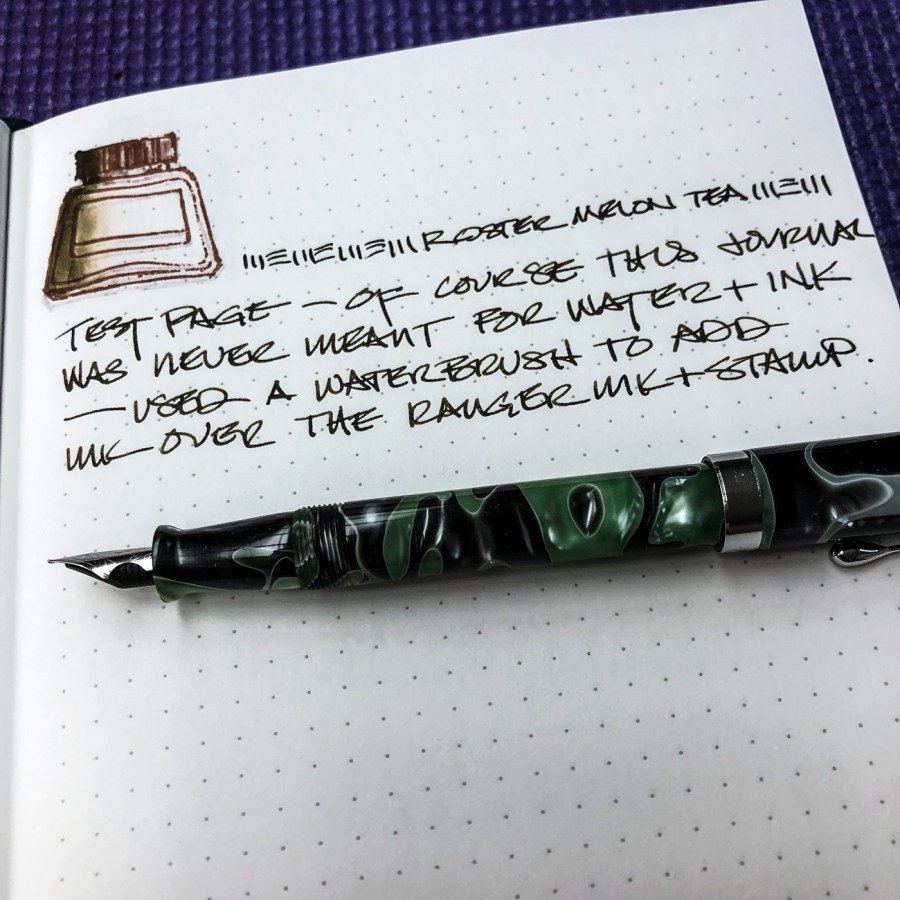 |||Ξ|||Ξ|||Ξ||| ROSTER MELON TEA |||Ξ|||
TEST PAGE – OF COURSE THIS JOURNAL
WAS NEVER MEANT FOR WATER + INK
— USED A WATERBRUSH TO ADD
INK OVER THE RANGER INK + STAMP.